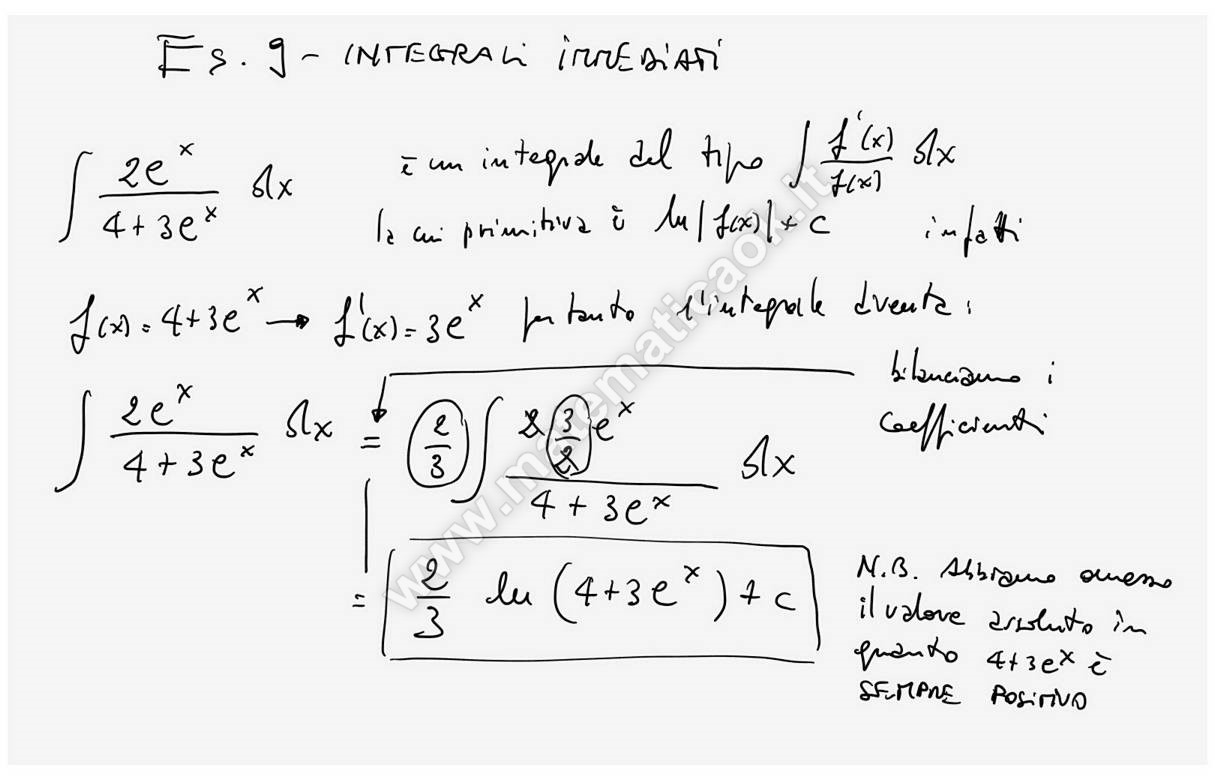 Es. 9 - INTEGRALI IMMEDIATI
∫ 2e^x / (4+3e^x) dx è un integrale del tipo ∫ f'(x)/f(x) dx
la cui primitiva è ln|f(x)|+c infatti
f(x) = 4+3e^x → f'(x) = 3e^x pertanto l'integrale dventa:
∫ 2e^x / (4+3e^x) dx = 2/3 ∫ 2 3/2 e^x / (4+3e^x) dx
bilanciamo i
coefficienti
= 2/3 ln (4+3e^x) + c
N.B. Abbiamo omesso
il valore assoluto in
quanto 4+3e^x è
SEMPRE POSITIVO
www.matematicaok.it